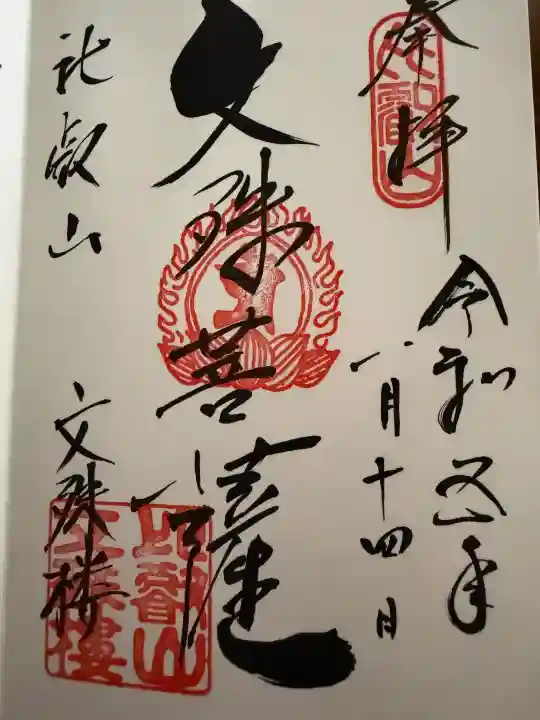 奉拝
比叡山
令和五年
八月十四日
文殊菩薩
比叡山 文殊楼
比叡山
文殊楼